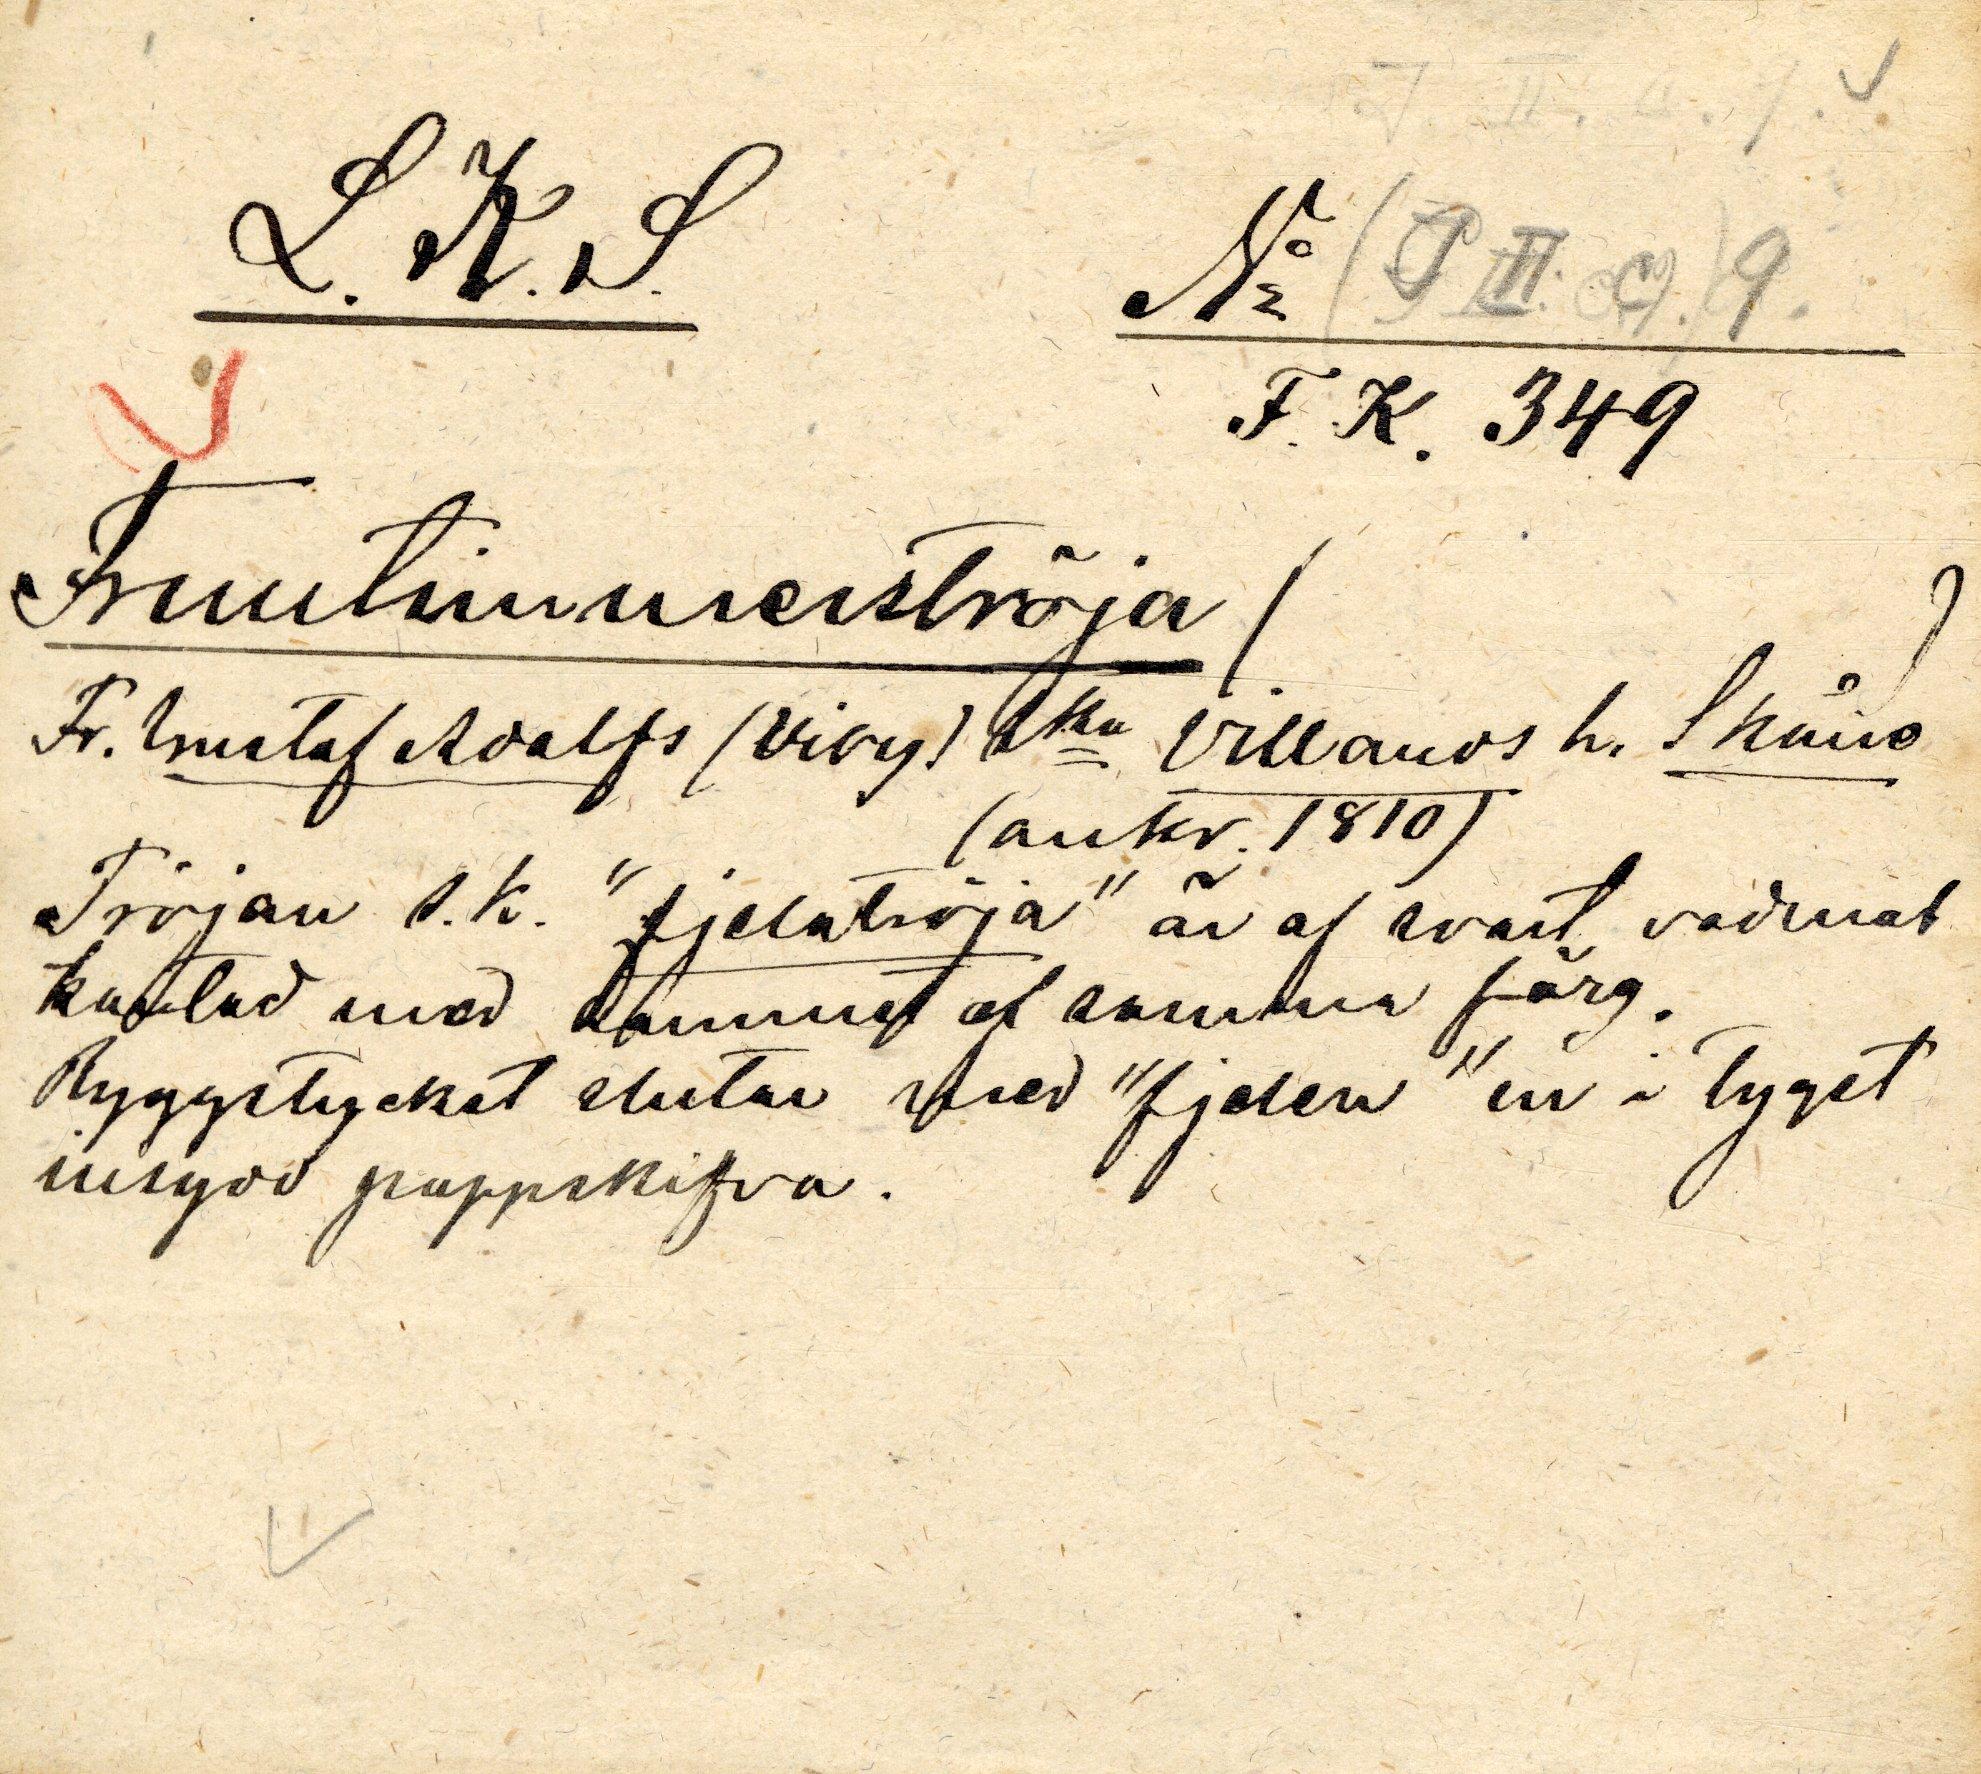 L. K. S.
No (P II. c.) 9.
F. K. 349
Fruntimmerströja ( )
Fr. Gustaf Adolfs (Viby) skn Villands h. Skåne
(omkr. 1810)
Tröjan s.k. "fjelatröja" är af svart vadmal
kantad med sammet af samma färg.
Ryggstycket slutar med "fjelen" en i tyget
insydd pappskifva.